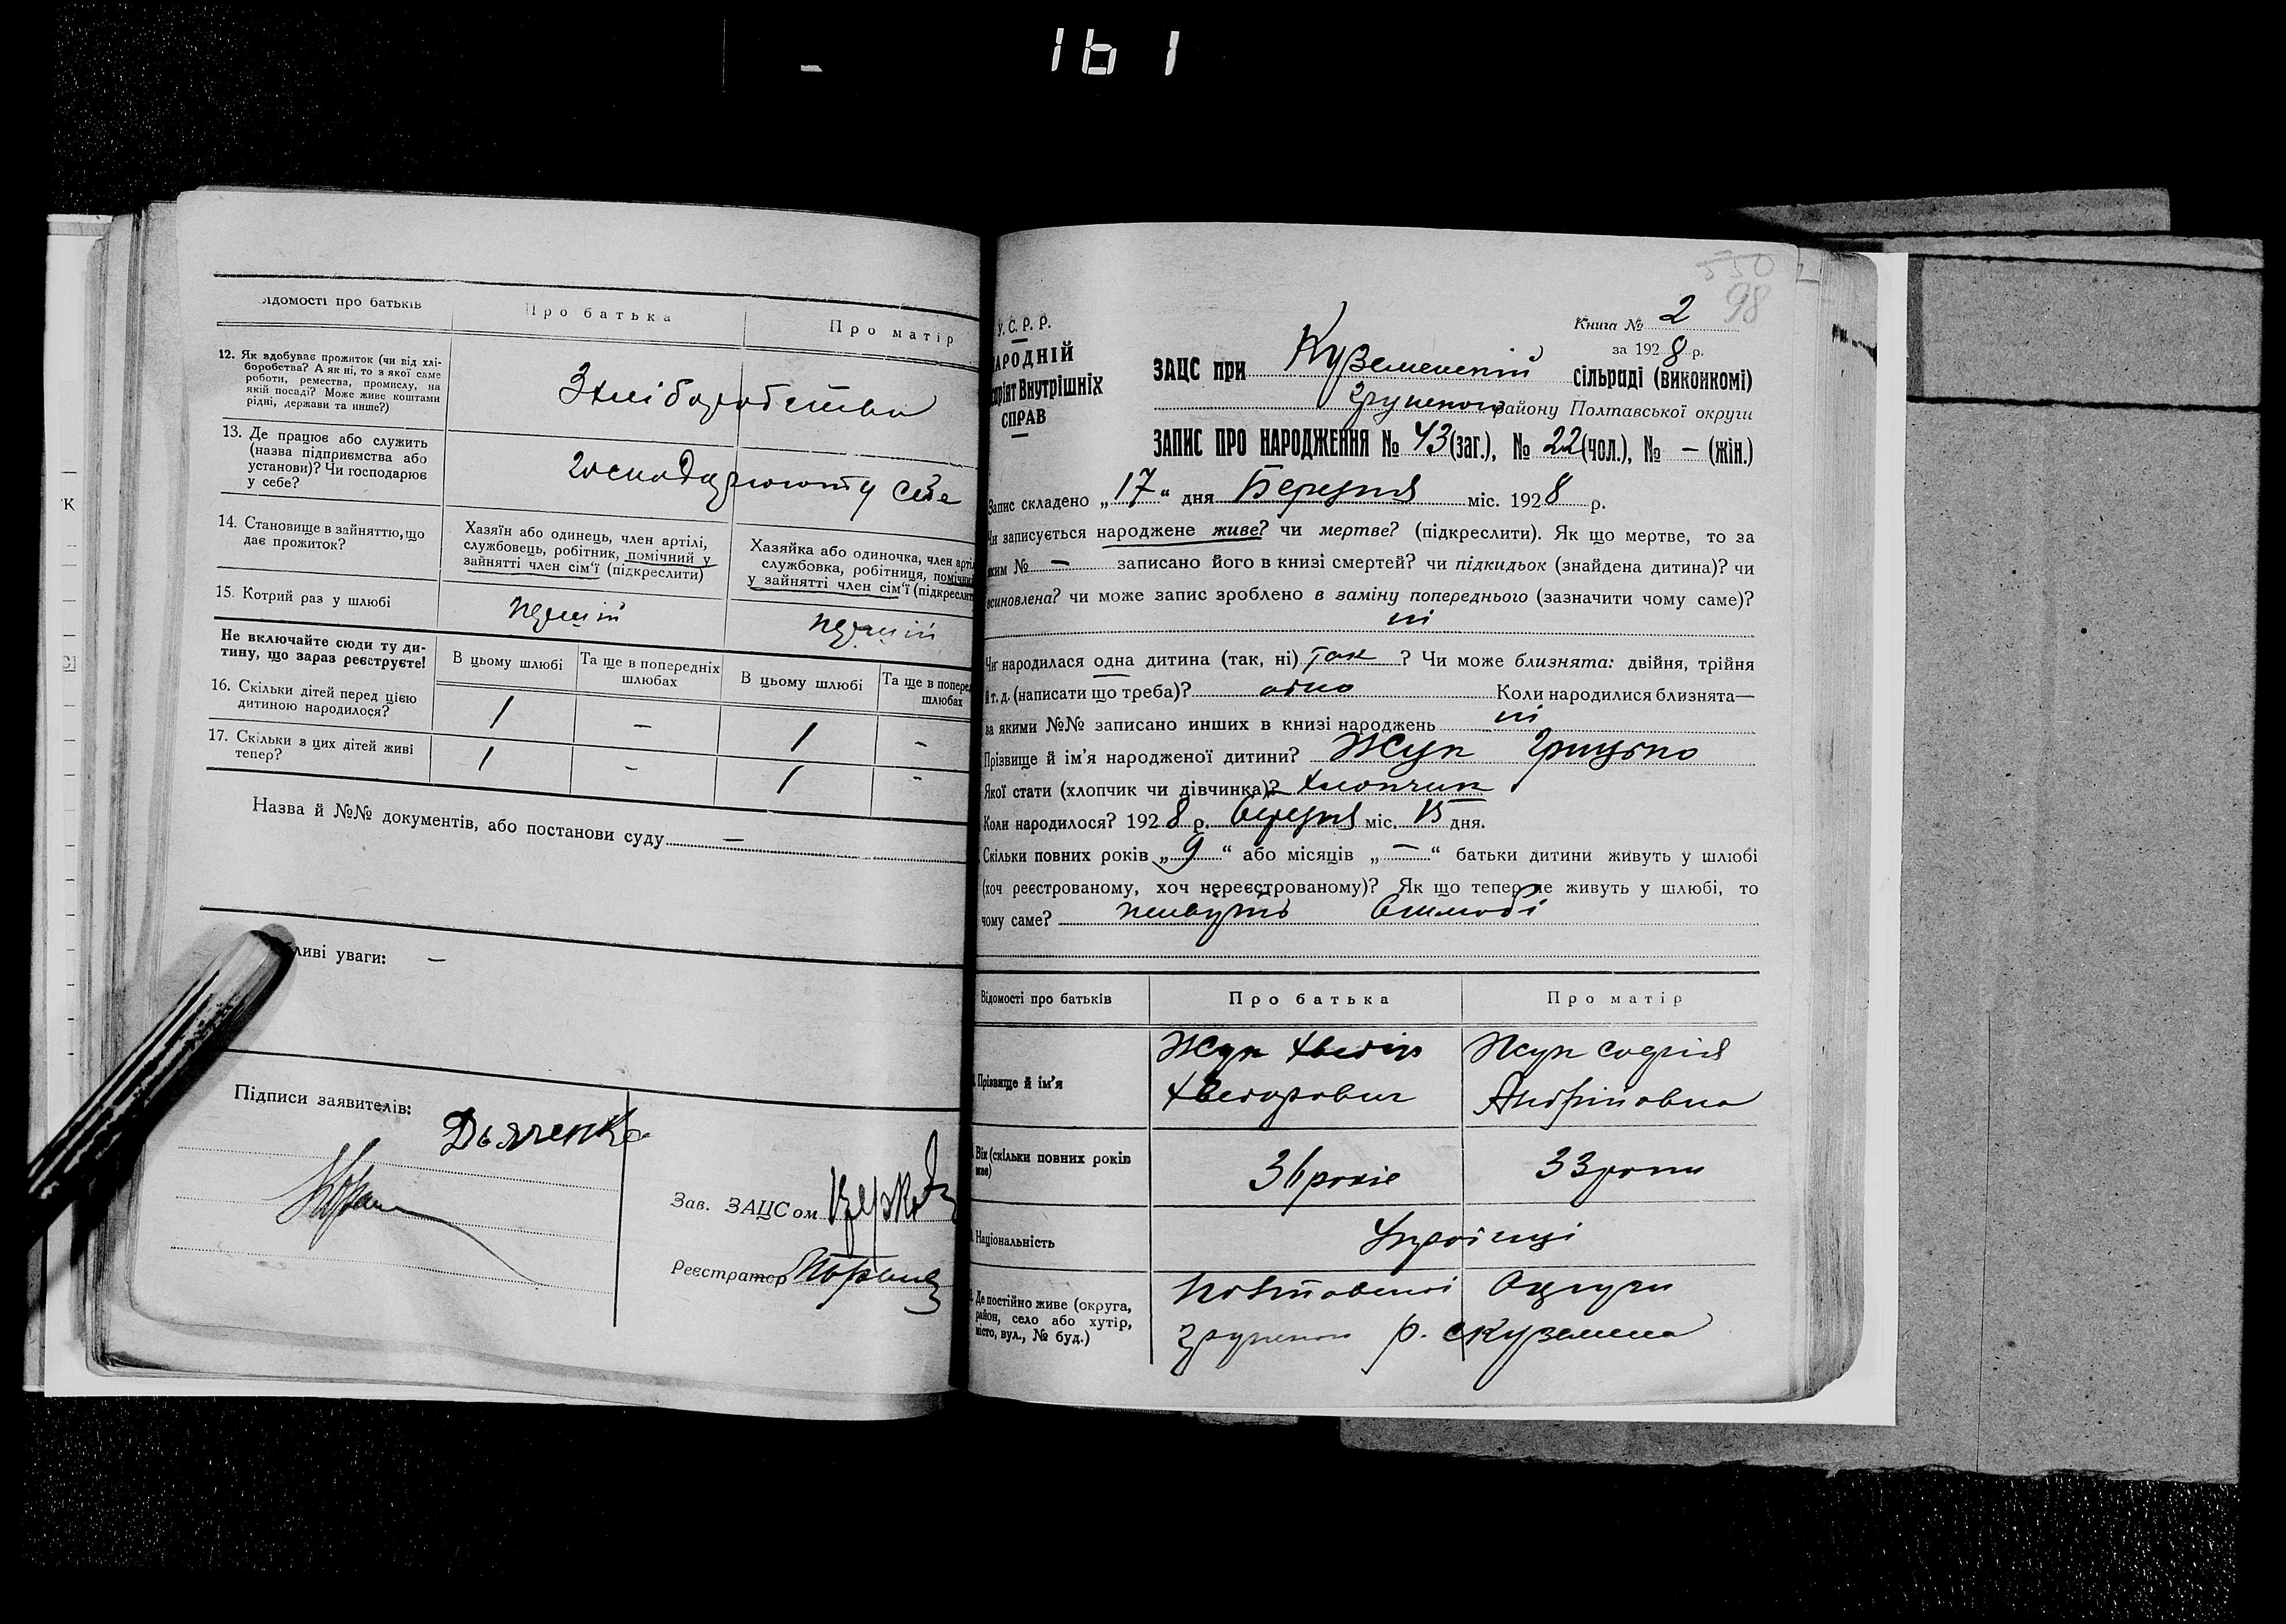 1b1
Відомості про батьків
Про батька
Про матір
12. Як здобуває прожиток (чи від хлі-
боробства? А як ні, то з якої саме
роботи, ремества, промислу, на
якій посаді? Може живе коштами
рідні, держави та инше?)
З хліборобства
13. Де працює або служить
(назва підприємства або
установи)? Чи господарює
у себе?
господарюють у себе
14. Становище в зайняттю, що
дає прожиток?
Хазяїн або одинець, член артілі,
службовець, робітник, помічний у
зайнятті член сім'ї (підкреслити)
Хазяйка або одиночка, член арті
службовка, робітниця, помічни
у зайнятті член сім'ї (підкреслит
15. Котрий раз у шлюбі
перший
перший
Не включайте сюди ту ди-
тину, що зараз реєструєте!
В цьому шлюбі
Та ще в попередніх
шлюбах
В цьому шлюбі
Та ще в поперед
шлюбах
16. Скільки дітей перед цією
дитиною народилося?
1 - 1 -
17. Скільки з цих дітей живі
тепер?
1 - 1 -
Назва й №№ документів, або постанови суду —
ливі уваги: —
Підписи заявителів:
Дьяченко
Зав. ЗАЦСом
Реєстратор
550
98
У.С.Р.Р.
АРОДНІЙ
аріят Внутрішніх
СПРАВ
Книга № 2
за 1928 р.
ЗАЦС при Куземенській сільраді (виконкомі)
Грунського району Полтавської округи
ЗАПИС ПРО НАРОДЖЕННЯ № 43 (заг.), № 22 (чол.), № — (жін.)
Запис складено „17“ дня Березня міс. 1928 р.
Чи записується народжене живе? чи мертве? (підкреслити). Як що мертве, то за
яким № — записано його в книзі смертей? чи підкидьок (знайдена дитина)? чи
всиновлена? чи може запис зроблено в заміну попереднього (зазначити чому саме)?
ні
Чи народилася одна дитина (так, ні) так ? Чи може близнята: двійня, трійня
й т. д. (написати що треба)? одно Коли народилися близнята—
за якими №№ записано инших в книзі народжень ні
Прізвище й ім'я народженої дитини? Жук Грицько
Якої стати (хлопчик чи дівчинка)? хлопчик
Коли народилося? 1928 р. березня міс. 15 дня.
Скільки повних років „9“ або місяців „—“ батьки дитини живуть у шлюбі
(хоч реєстрованому, хоч нереєстрованому)? Як що тепер не живуть у шлюбі, то
чому саме? живуть в шлюбі
Відомості про батьків
Про батька
Про матір
Прізвище й ім'я
Жук
Хведорович
Жук Софія
Андріївна
Вік (скільки повних років
має)
36 років
33 роки
Національність
Українці
Де постійно живе (округа,
район, село або хутір,
місто, вул., № буд.)
Полтавської Округи
Грунського р. с Куземена